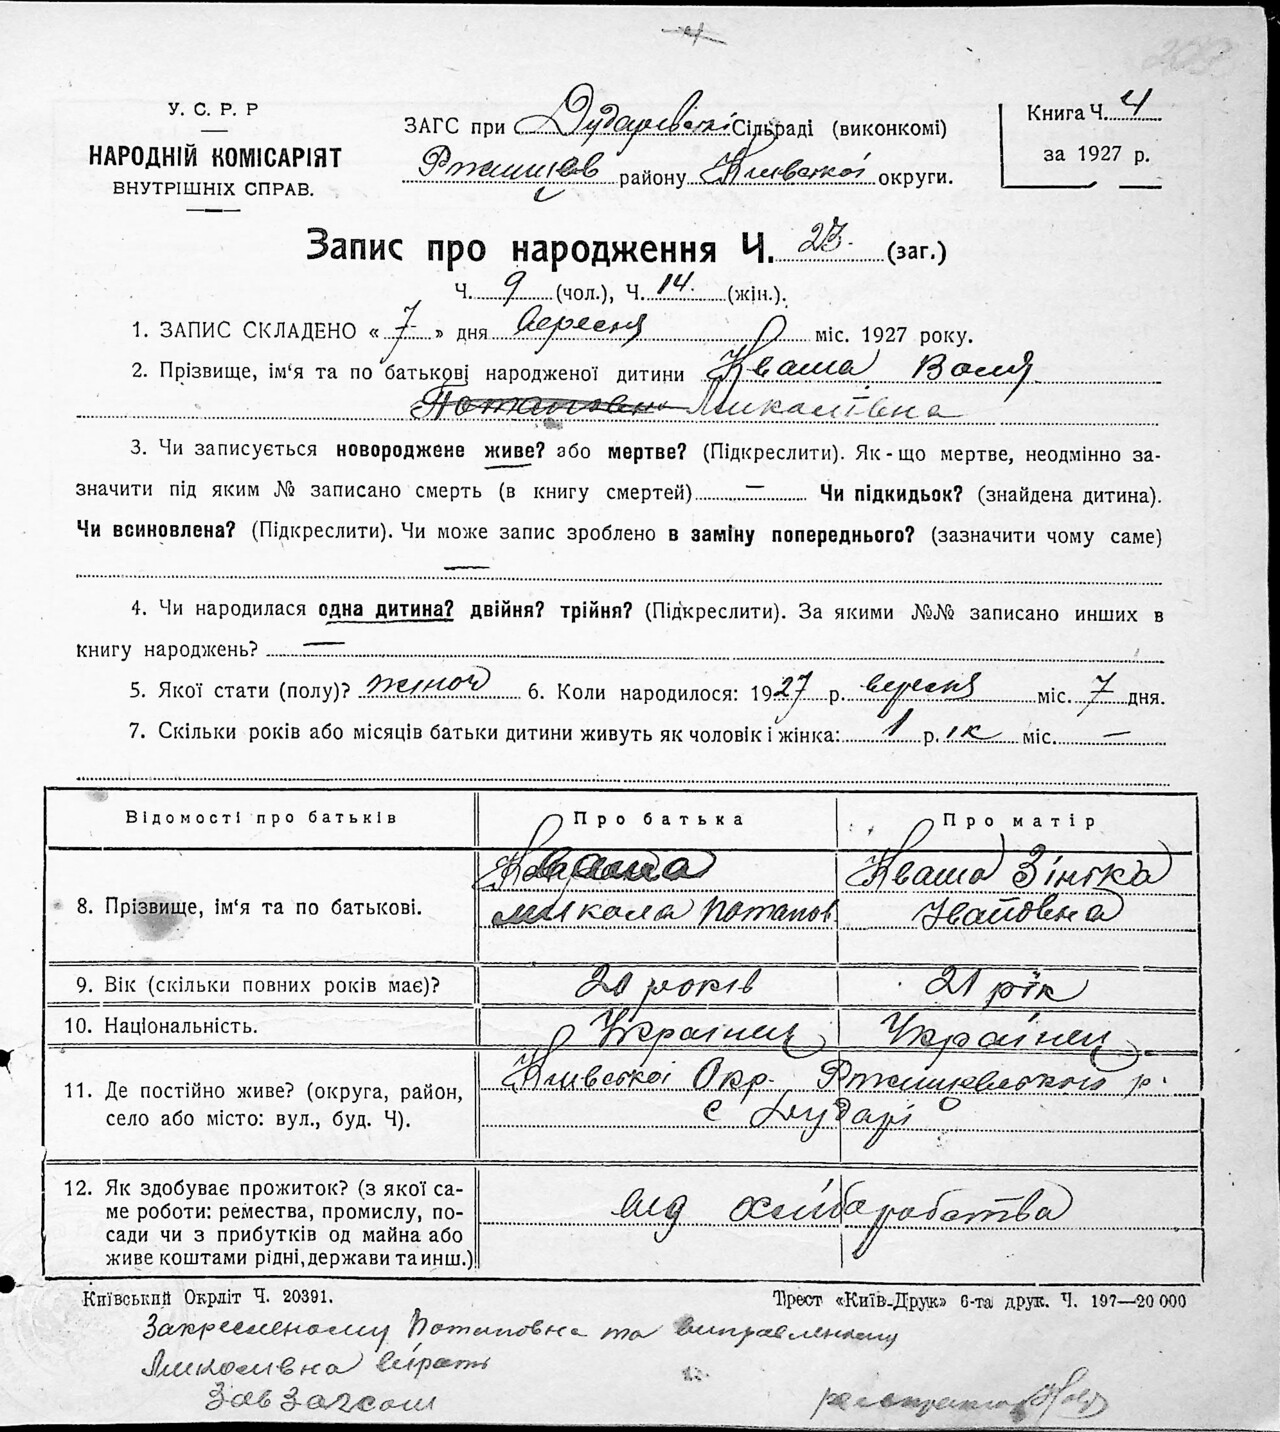 У. С. Р. Р
НАРОДНІЙ КОМІСАРІЯТ
ВНУТРІШНІХ СПРАВ.
ЗАГС при Дударівскі Сільраді (виконкомі)
Ржищів району Київської округи.
Книга Ч. 4
за 1927 р.
Запис про народження Ч. 23 (заг.)
Ч. 9 (чол.), Ч. 14 (жін.).
1. ЗАПИС СКЛАДЕНО « 7 » дня вересня міс. 1927 року.
2. Прізвище, ім'я та по батькові народженої дитини Кваша Воля
Потаповна Миколівна
3. Чи записується новороджене живе? або мертве? (Підкреслити). Як-що мертве, неодмінно за-
значити під яким № записано смерть (в книгу смертей) — Чи підкидьок? (знайдена дитина).
Чи всиновлена? (Підкреслити). Чи може запис зроблено в заміну попереднього? (зазначити чому саме)
—
4. Чи народилася одна дитина? двійня? трійня? (Підкреслити). За якими №№ записано инших в
книгу народжень? —
5. Якої стати (полу)? жіноч 6. Коли народилося: 1927 р. вересня міс. 7 дня.
7. Скільки років або місяців батьки дитини живуть як чоловік і жінка: 1 р. ік міс. —
Відомості про батьків Про батька Про матір
8. Прізвище, ім'я та по батькові.
Кваша
Микола Потапов
Кваша Зінька
Івановна
9. Вік (скільки повних років має)? 20 років 21 рік
10. Національність. Українец Українец
11. Де постійно живе? (округа, район,
село або місто: вул., буд. Ч).
Київської Окр. Ржищевського р.
с Дударі
12. Як здобуває прожиток? (з якої са-
ме роботи: ремества, промислу, по-
сади чи з прибутків од майна або
живе коштами рідні, держави та инш.)
від хліборобства
Київський Окрліт Ч. 20391.
Трест «Київ-Друк» 6-та друк. Ч. 197—20 000
Закресленому Потаповна та виправленому
Миколівна вірить
Зав Загсом